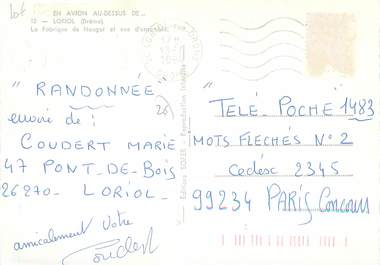 Lot
EN AVION AU-DESSUS DE...
12 — LORIOL (Drôme)
La Fabrique de Nougat et vue d'ensemble
" RANDONNÉE "
envoi de :
COUDERT MARIE
47 PONT-DE-BOIS
26270 - LORIOL -
amicalement Vôtre
Coudert
26
"TELÉ-POCHE" 1483
MOTS FLECHÉS N° 2
Cedèsc 2345
99234 PARIS Concours